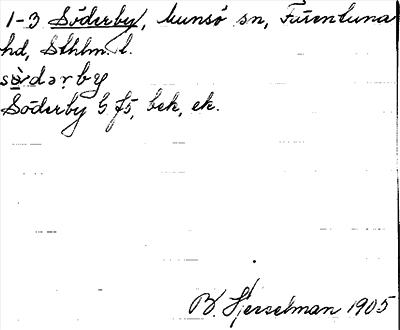 1-3 Söderby, Munsö sn, Färentuna
hd, Sthlm. l.
södərby
Söderby G f5, bek, ek.
B. Hesselman 1905